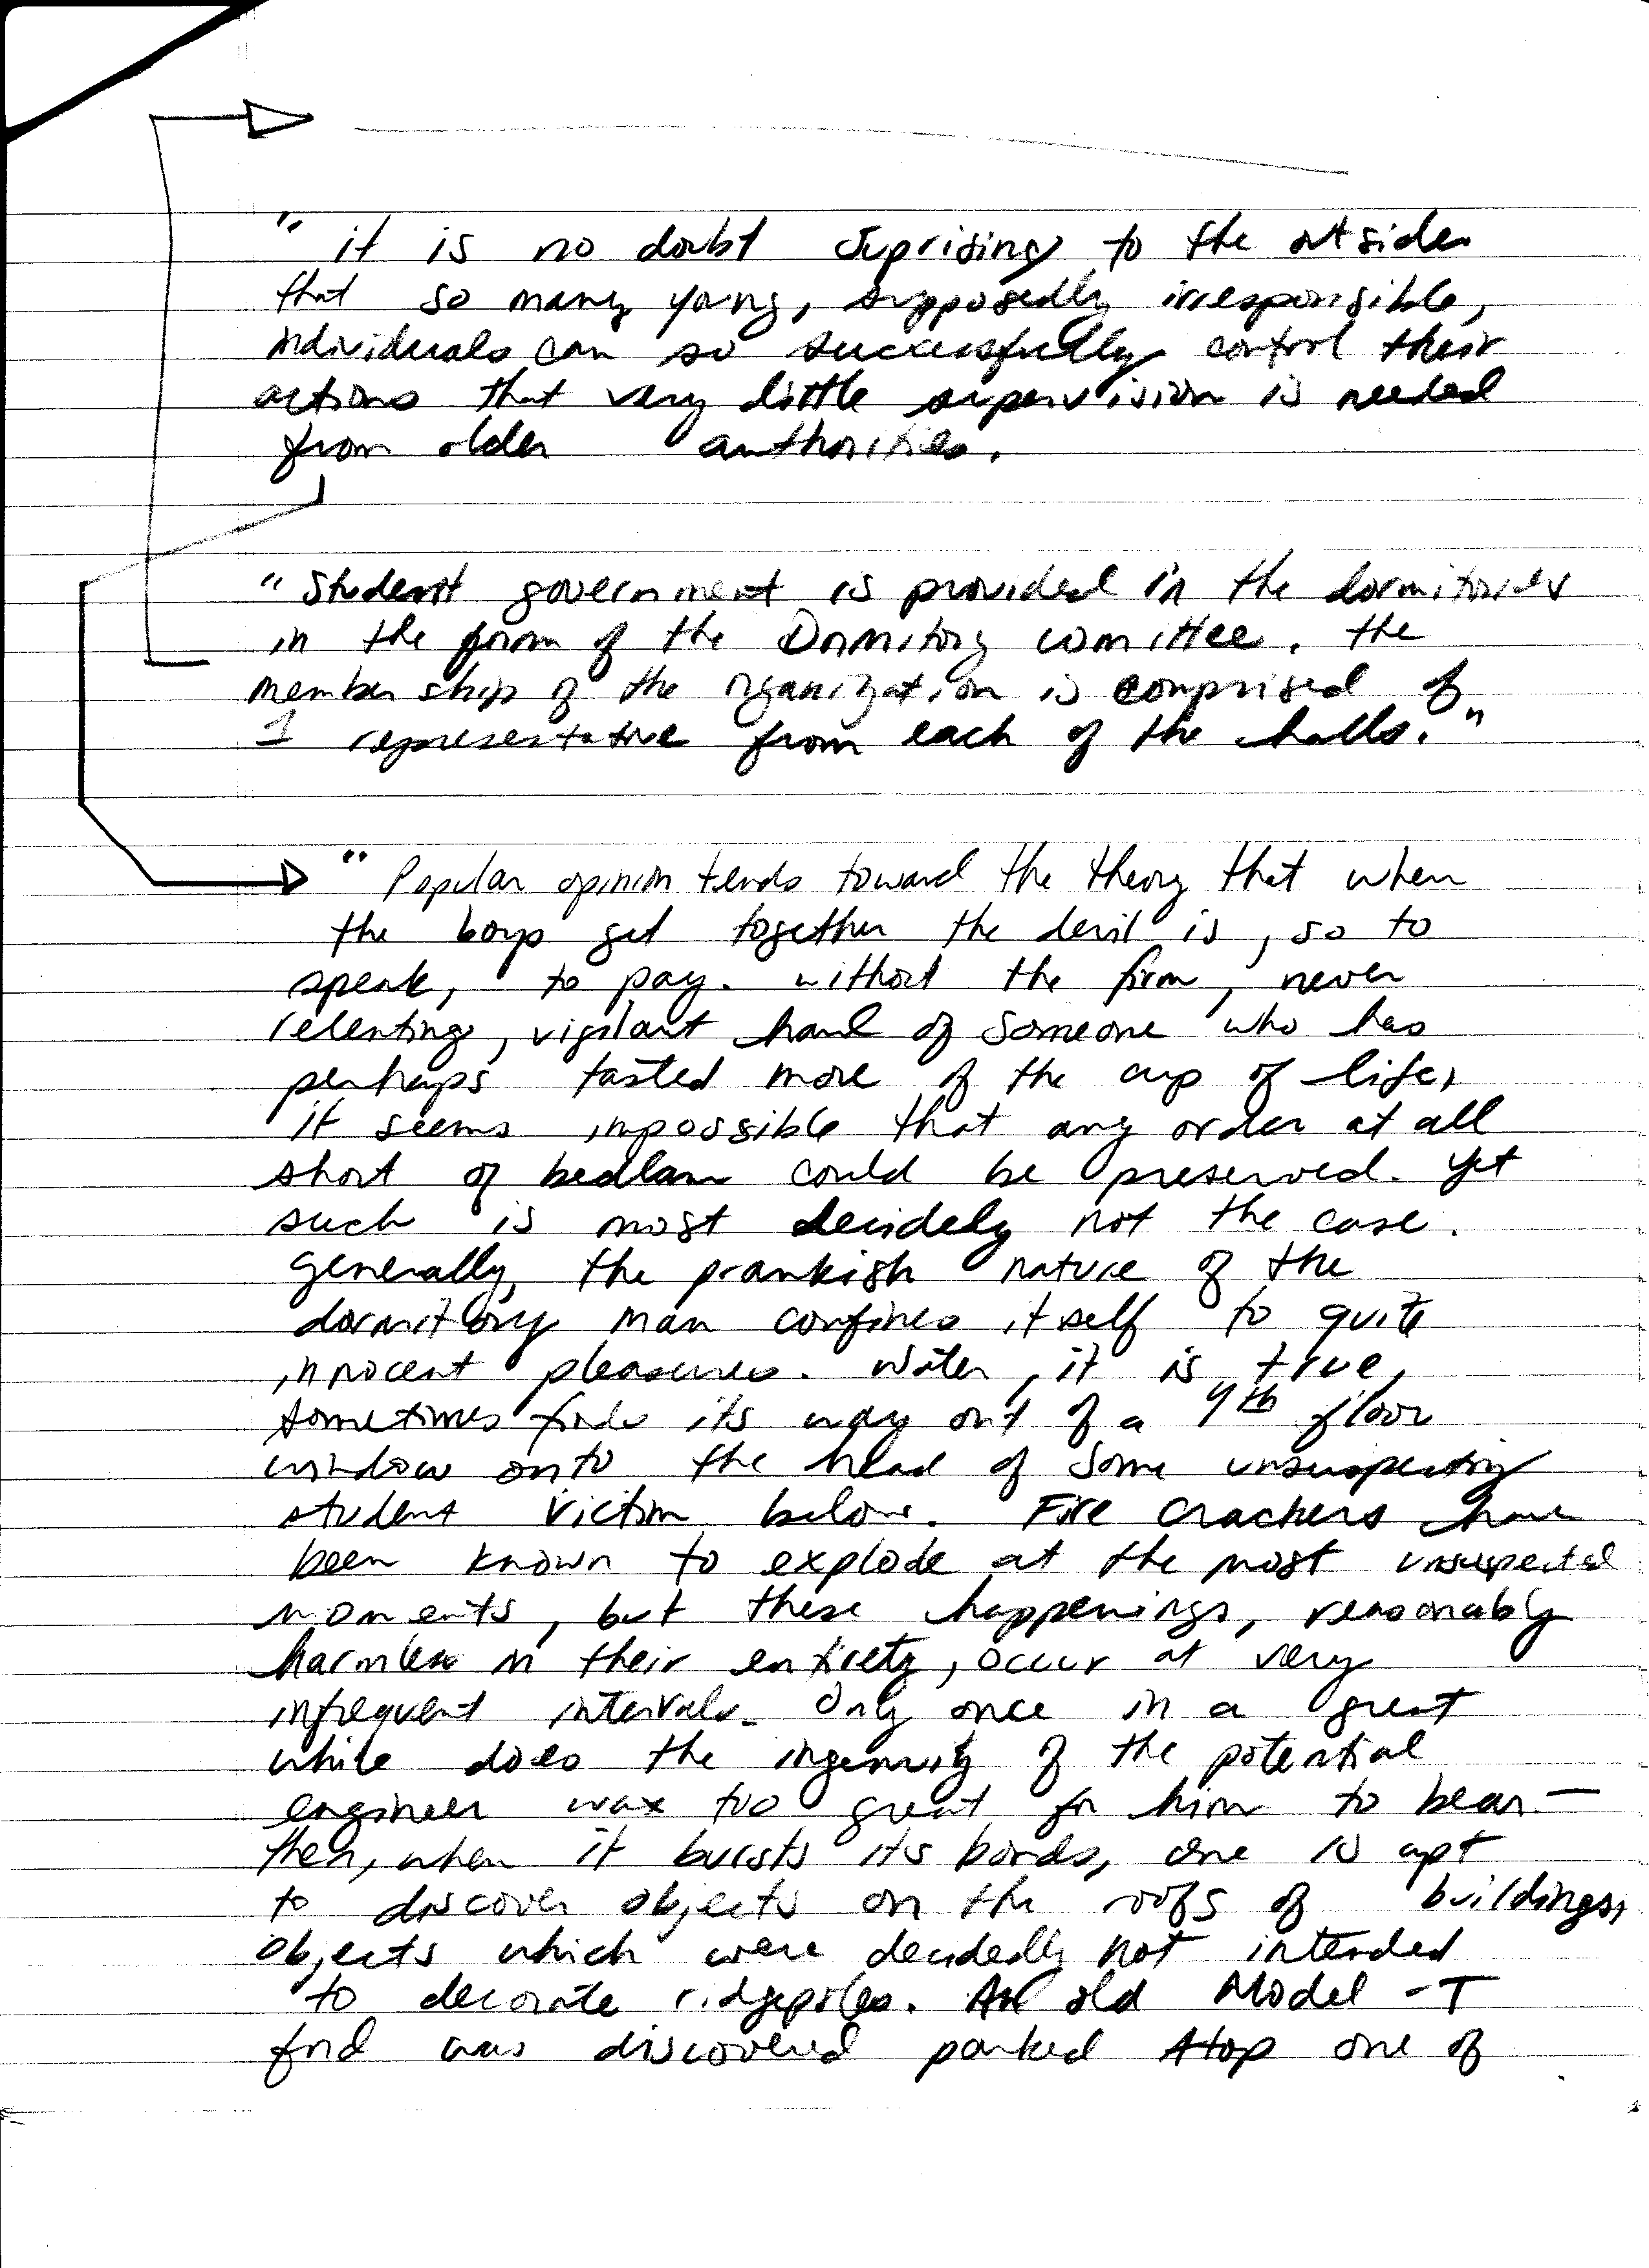 " it is no doubt suprising to the outsider
that so many young, supposedly irresponsible,
individuals can so successfully control their
actions that very little supervision is needed
from older authorities.
"Student government is provided in the dormitories
in the form of the Dormitory comittee. the
membership of the organization is comprised of
1 representative from each of the halls."
" Popular opinion tends toward the theory that when
the boys get together the devil is, so to
speak, to pay. without the firm, never
relenting, vigilant hand of someone who has
perhaps tasted more of the cup of life,
it seems impossible that any order at all
short of bedlam could be preserved. yet
such is most decidely not the case.
generally, the prankish nature of the
dormitory man confines itself to quite
innocent pleasures. Water, it is true,
sometimes finds its way out of a 4th floor
window onto the head of some unsuspecting
student victim below. Fire crackers have
been known to explode at the most unsuspected
moments, but these happenings, reasonably
harmless in their entirety, occur at very
infrequent intervals. Only once in a great
while does the ingenuity of the potential
engineer wax too great for him to bear—
then, when it bursts its bonds, one is apt
to discover objects on the roofs of buildings,
objects which were decidedly not intended
to decorate ridgepoles. An old Model-T
ford was discovered parked Atop one of